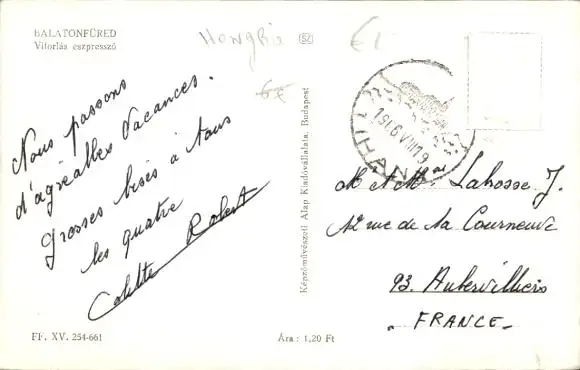 BALATONFÜRED
Vitorlás eszpresszó
Hongrie
52
€1
6€
Nous passons
d'agréables Vacances.
Grosses bises à tous
les quatre
Colette Robert
FF. XV. 254-661
Ára : 1,20 Ft
Képzőművészeti Alap Kiadóvállalata, Budapest
TIHANY
M et Me Lahosse J.
12 rue de la Courneuve
93. Aubervilliers
- FRANCE -